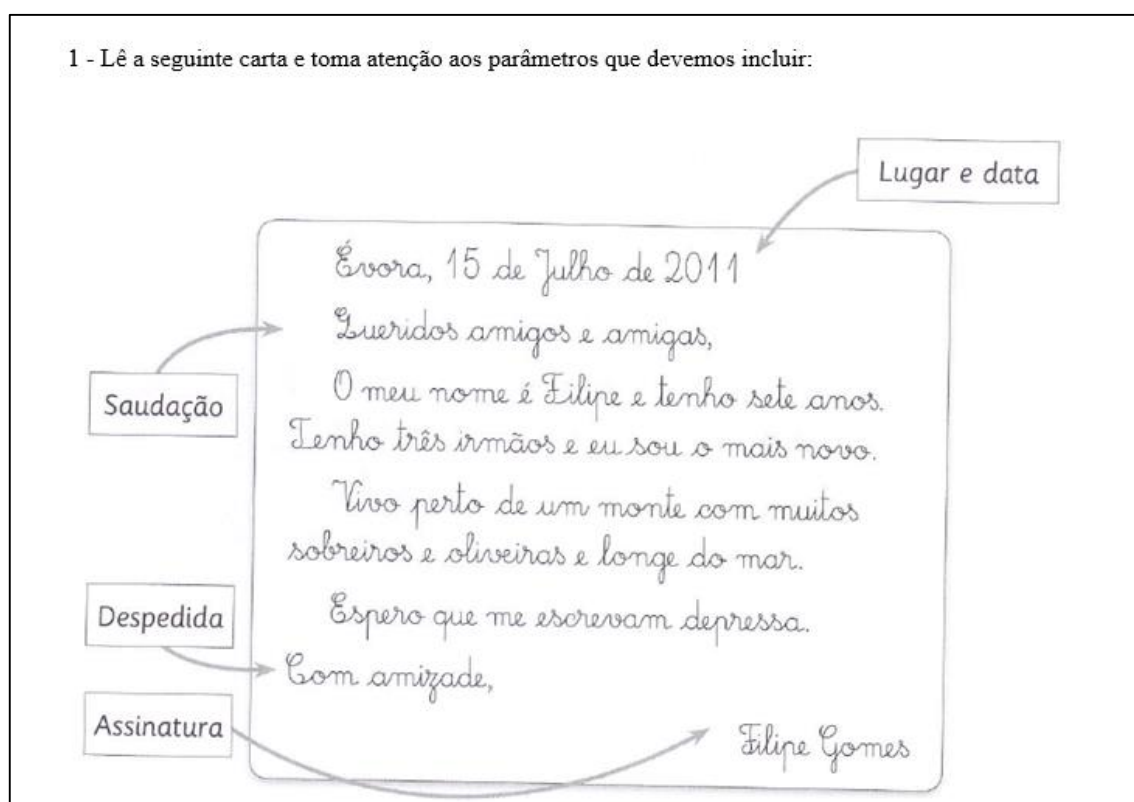 1 - Lê a seguinte carta e toma atenção aos parâmetros que devemos incluir:
Lugar e data
Évora, 15 de Julho de 2011
Saudação
Queridos amigos e amigas,
O meu nome é Filipe e tenho sete anos.
Tenho três irmãos e eu sou o mais novo.
Vivo perto de um monte com muitos
sobreiros e oliveiras e longe do mar.
Espero que me escrevam depressa.
Despedida
Com amizade,
Assinatura
Filipe Gomes